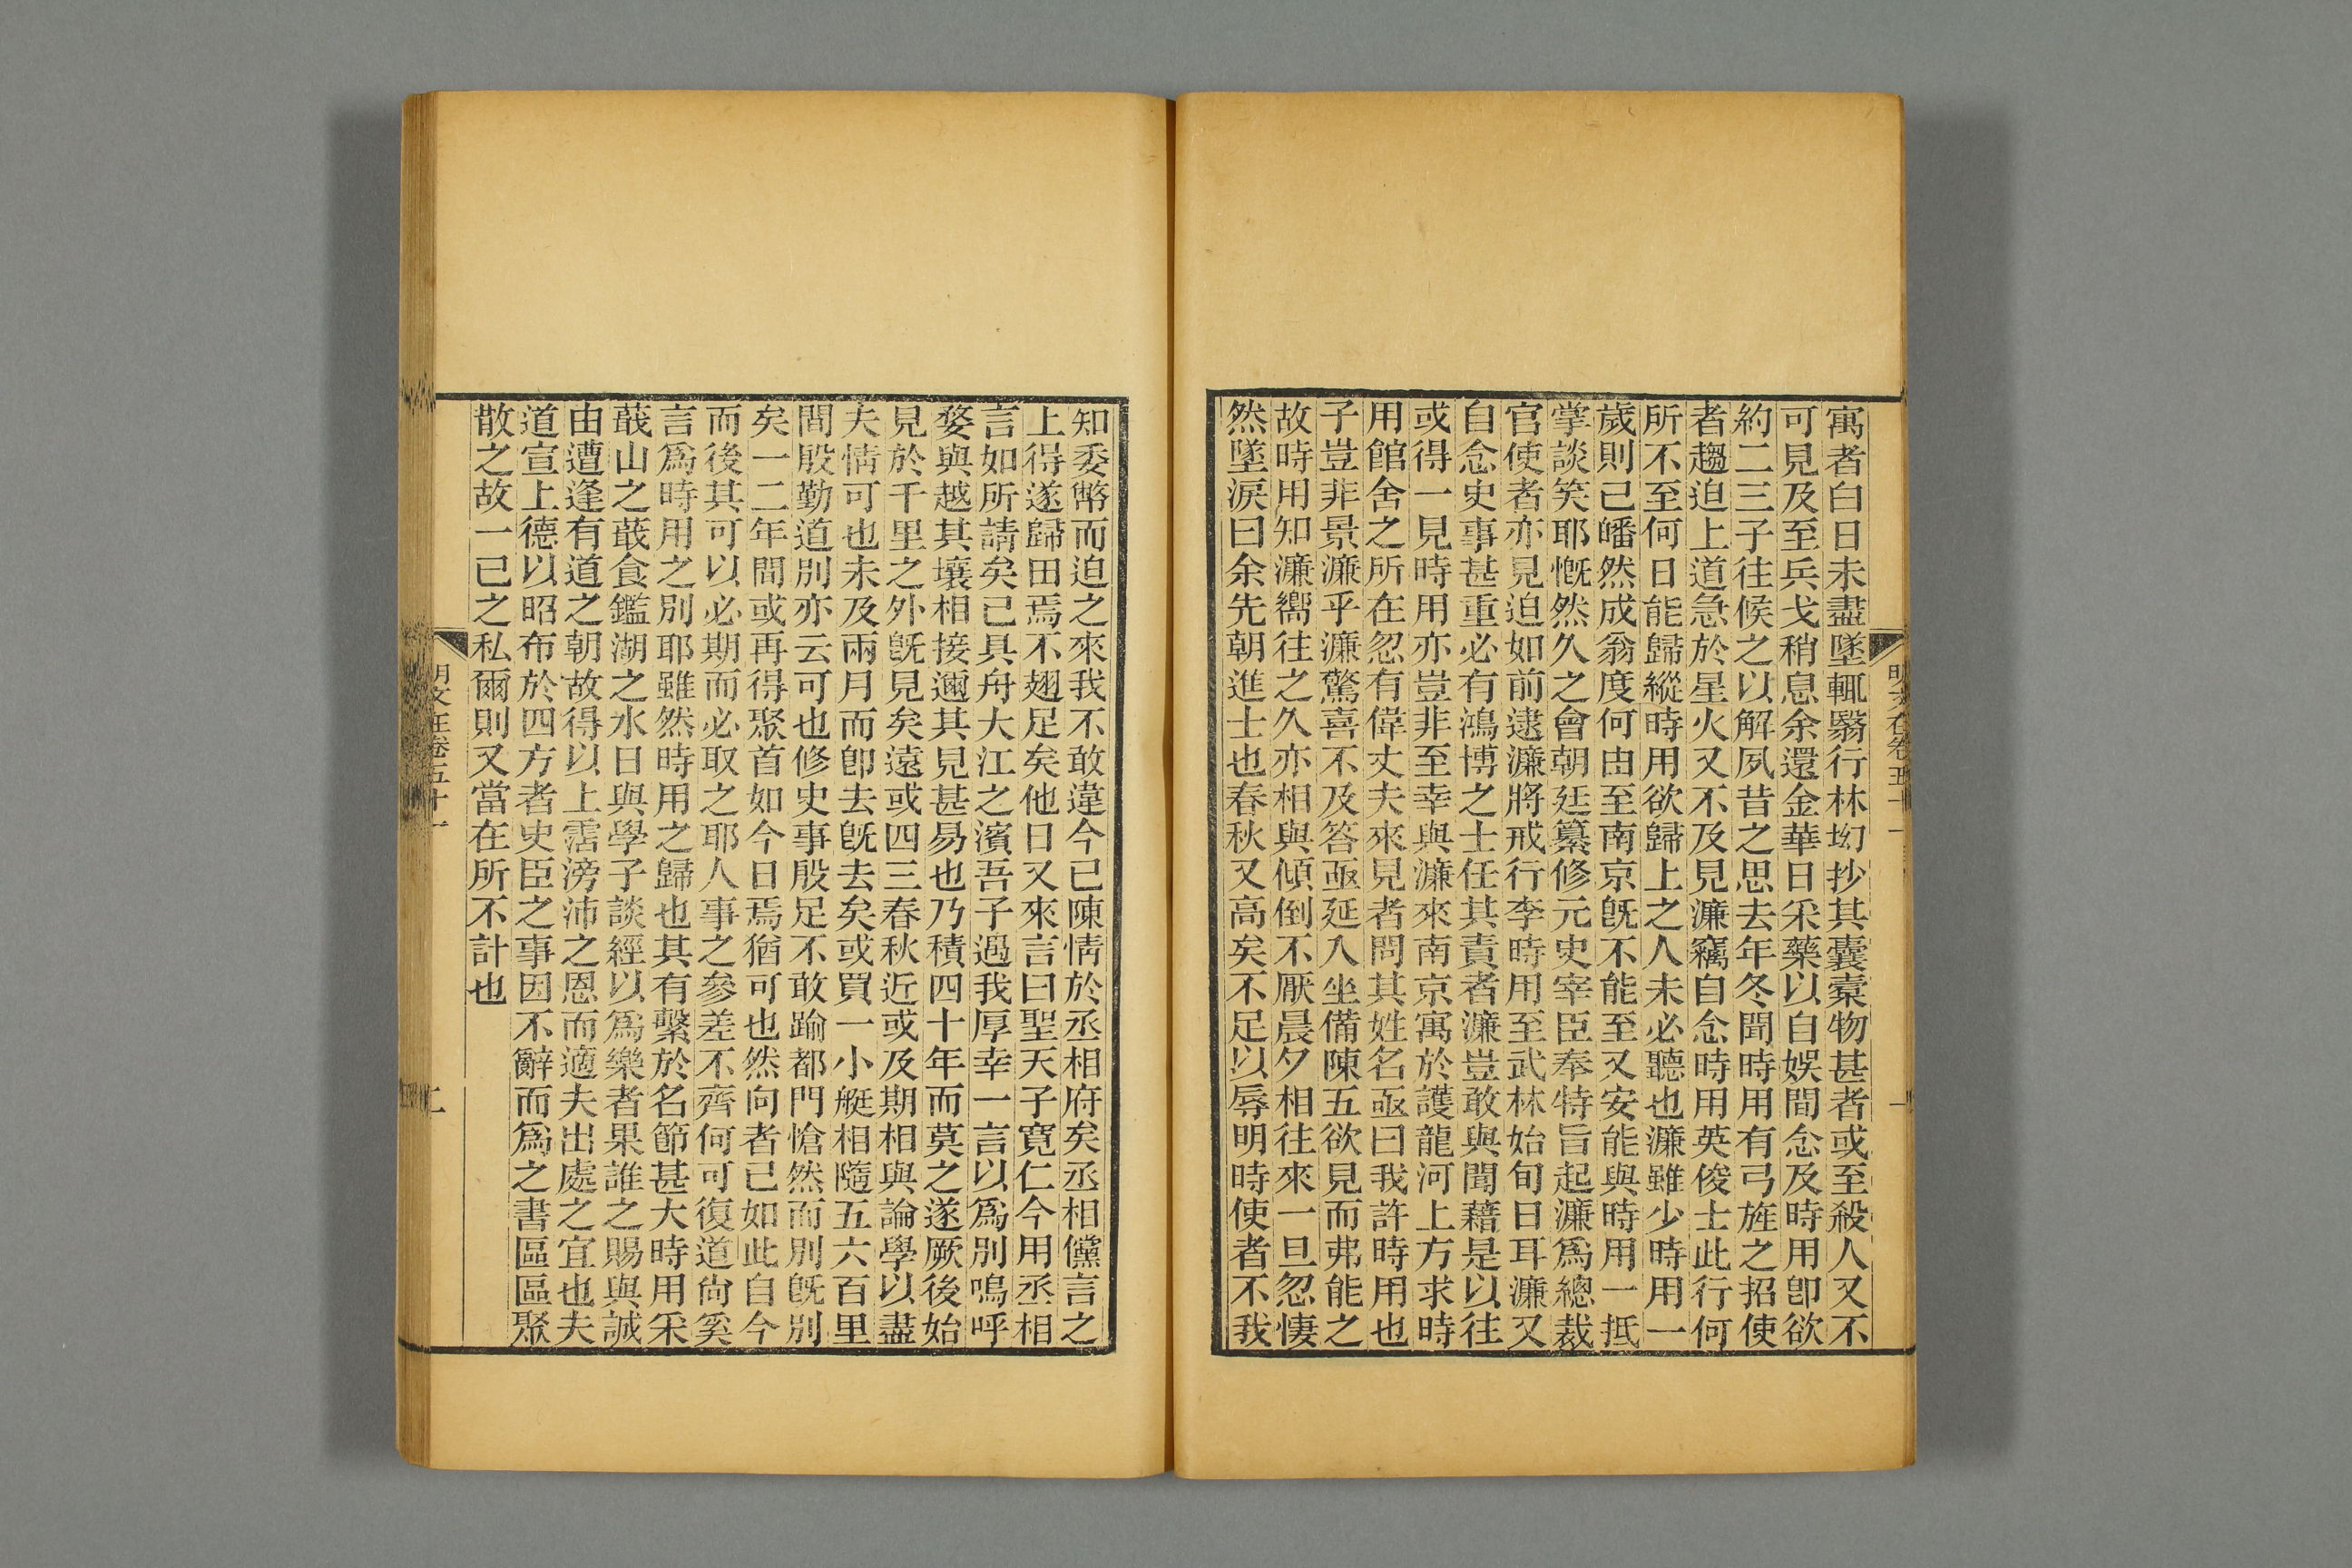 寓者白日未盡墜輒翳行林㘭抄其囊橐物甚者或至殺人又不
可見及至兵戈稍息余還金華日采藥以自娛間念及時用卽欲
約二三子往候之以解夙昔之思去年冬聞時用有弓旌之招使
者趨迫上道急於星火又不及見濂竊自念時用英俊士此行何
所不至何日能歸縱時用欲歸上之人未必聽也濂雖少時用一
歲則已皤然成翁度何由至南京旣不能至又安能與時用一抵
掌談笑耶慨然久之會朝廷纂修元史宰臣奉特旨起濂爲總裁
官使者亦見迫如前逮濂將戒行李時用至武林始旬日耳濂又
自念史事甚重必有鴻博之士任其責者濂豈敢與聞藉是以往
或得一見時用亦豈非至幸與濂來南京寓於護龍河上方求時
用館舍之所在忽有偉丈夫來見者問其姓名亟曰我許時用也
子豈非景濂乎濂驚喜不及答亟延入坐備陳五欲見而弗能之
故時用知濂嚮往之久亦相與傾倒不厭晨夕相往來一旦忽悽
然墜淚曰余先朝進士也春秋又高矣不足以辱明時使者不我
明文在卷五十一
一
知委幣而迫之來我不敢違今已陳情於丞相府矣丞相儻言之
上得遂歸田焉不翅足矣他日又來言曰聖天子寬仁今用丞相
言如所請矣已具舟大江之濱吾子過我厚幸一言以爲別嗚呼
婺與越其壤相接邇其見甚易也乃積四十年而莫之遂厥後始
見於千里之外旣見矣遠或四三春秋近或及期相與論學以盡
夫情可也未及兩月而卽去旣去矣或買一小艇相隨五六百里
間殷勤道別亦云可也修史事殷足不敢踰都門愴然而別旣別
矣一二年間或再得聚首如今日焉猶可也然向者已如此自今
而後其可以必期而必取之耶人事之參差不齊何可復道尚奚
言爲時用之別耶雖然時用之歸也其有繫於名節甚大時用采
蕺山之蕺食鑑湖之水日與學子談經以爲樂者果誰之賜與誠
由遭逢有道之朝故得以上霑滂沛之恩而適夫出處之宜也夫
道宣上德以昭布於四方者史臣之事因不辭而爲之書區區聚
散之故一己之私爾則又當在所不計也
明文在卷五十一
二